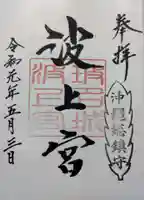 奉拝
沖繩總鎮守
波上宮
令和元年五月三日